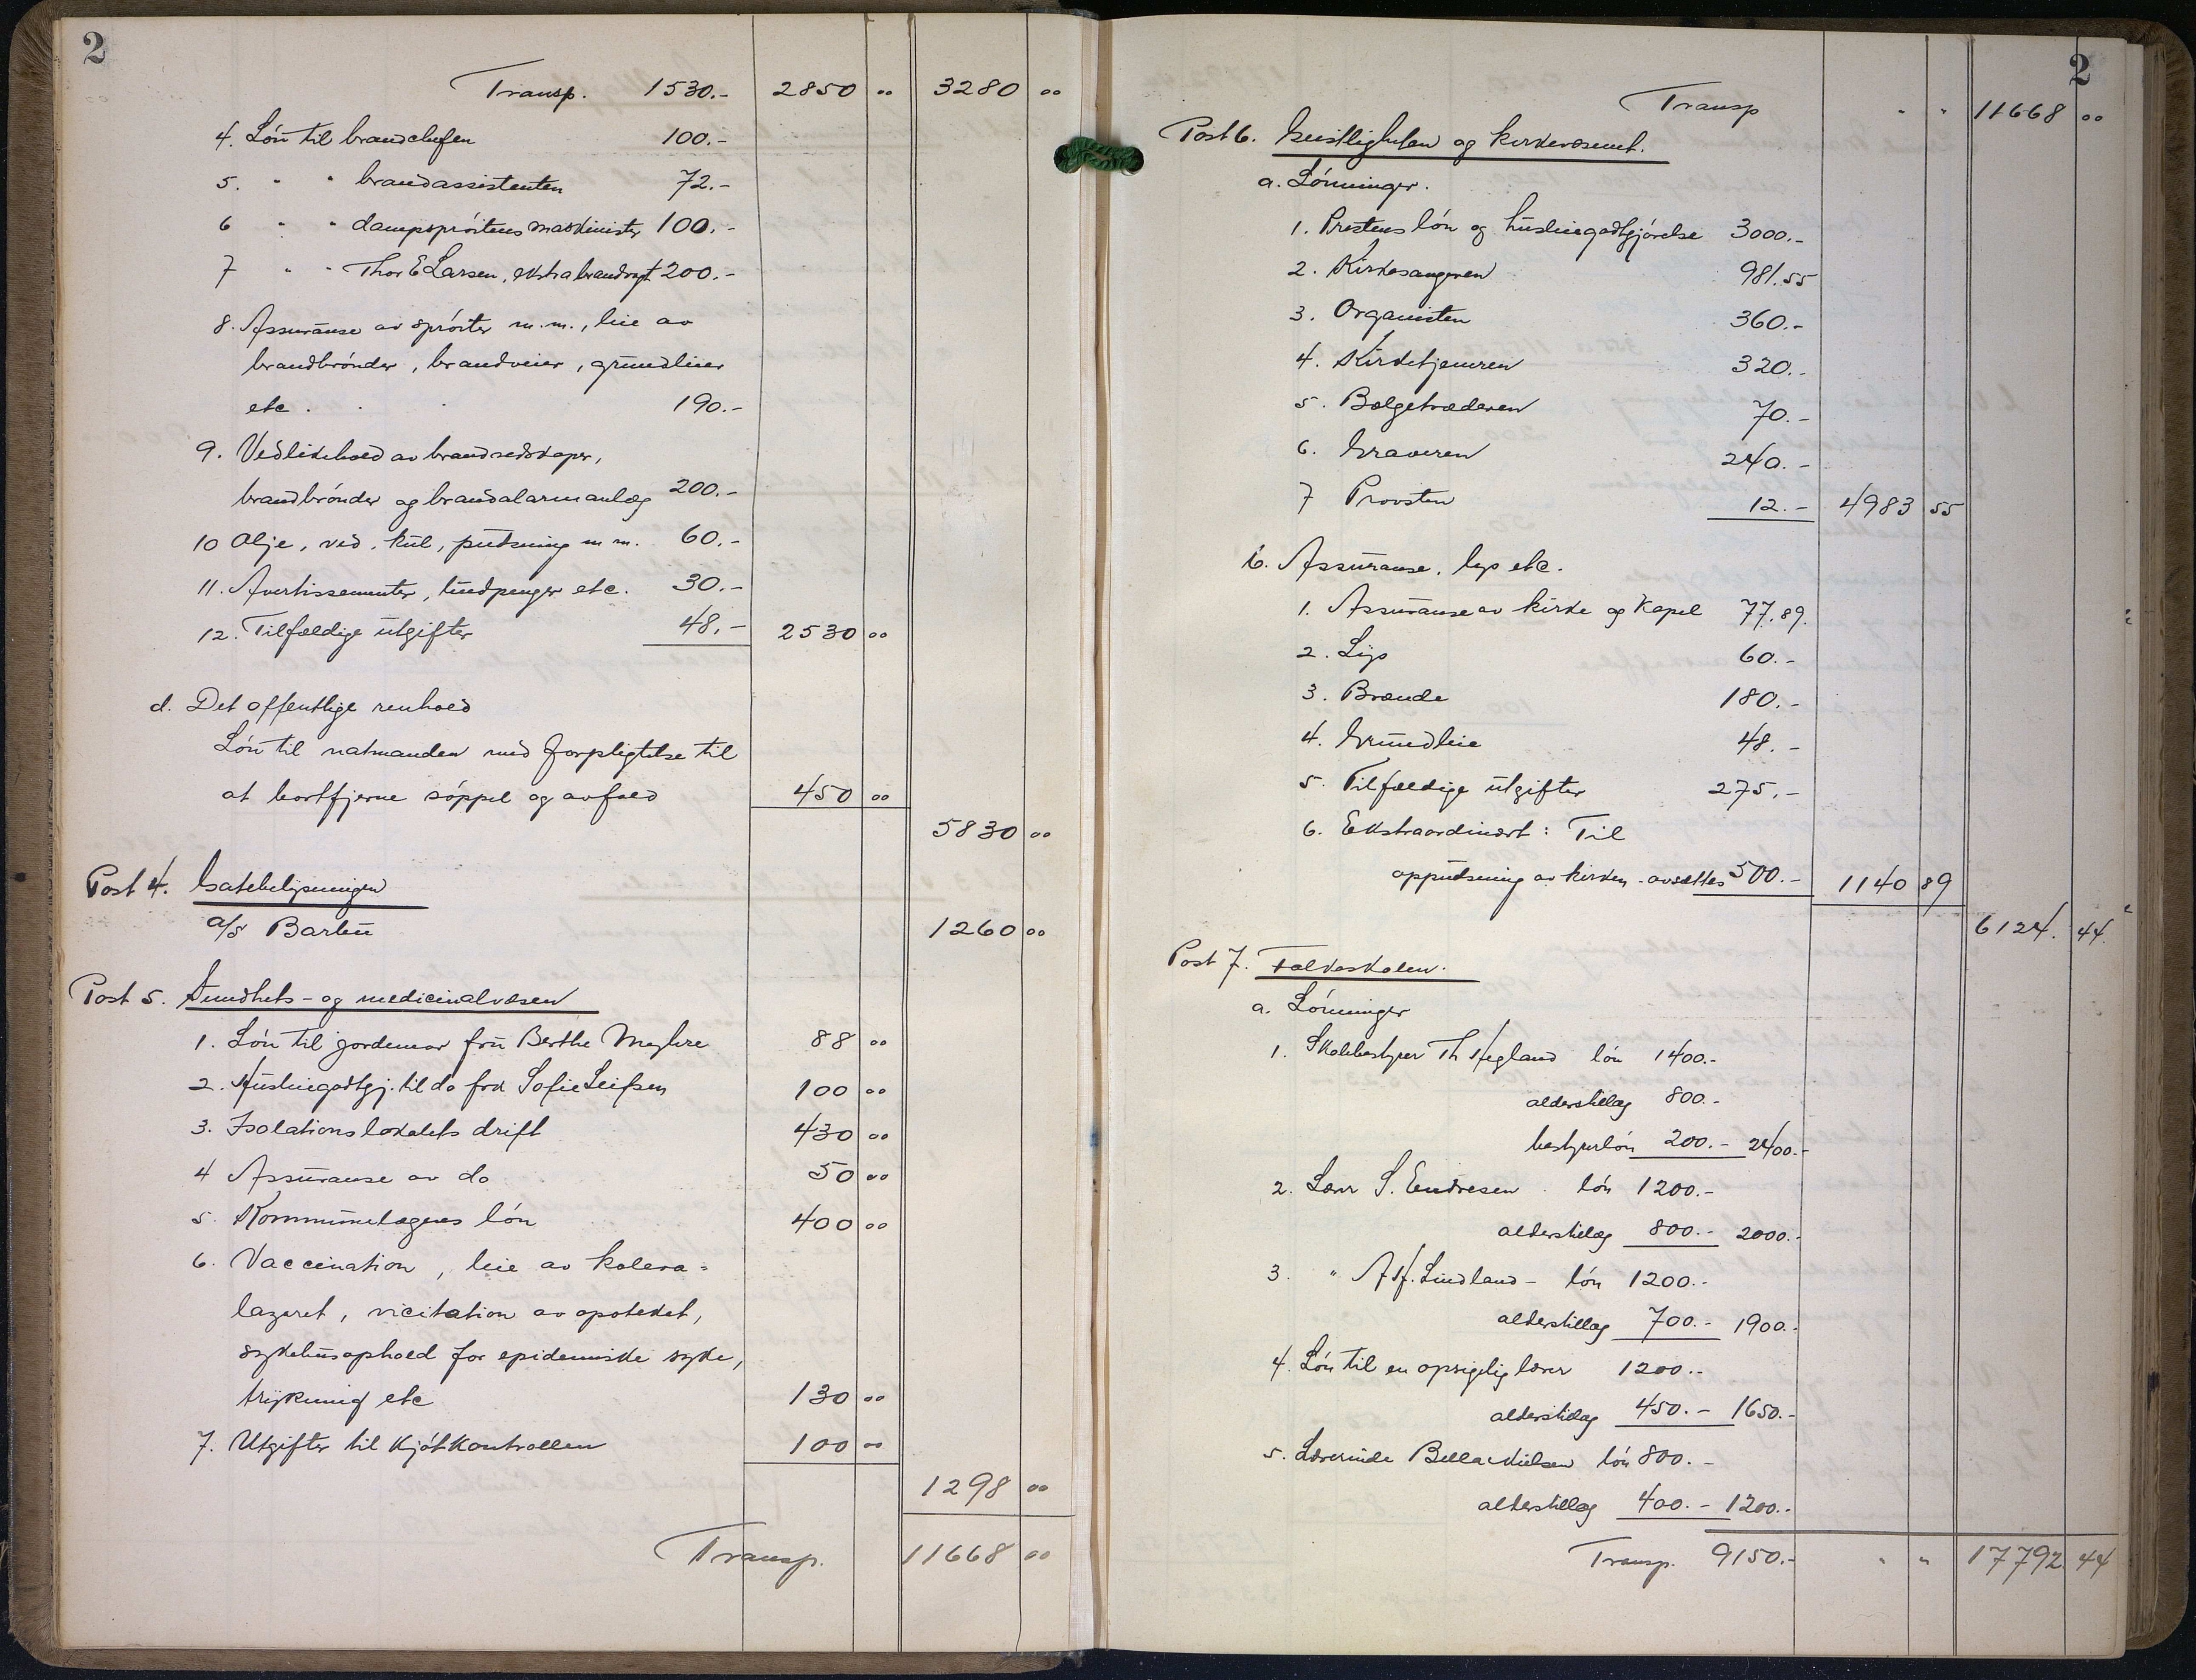 2
Transp. 1530.- 2850 00 3280 00
4. Løn til brandchefen 100.-
5. " " brandassistenten 72.-
6 " " dampsprøitens maskinister 100.-
7 " " Thor E Larsen, ekstra brandvagt 200.-
8. Assuranse av sprøiter m.m., leie av
brandbrønder, brandveier, grundleier
etc. 190.-
9. Vedlikehold av brandredskaper,
brandbrønder og brandalarmanlæg 200.-
10 Olje, ved, kul, pudsning m m. 60.-
11. Avertissementer, budpenger etc. 30.-
12. Tilfældige utgifter 48.- 2530 00
d. Det offentlige renhold
Løn til natmanden med forpligtelse til
at bortfjerne søppel og avfald 450 00
5830 00
Post 4. Gatebelysningen
a/s Barbu 1260 00
Post 5. Sundhets- og medicinalvæsen
1. Løn til jordemor fru Berthe Meyhre 88 00
2. Husleiegodtgj. til do frk Sofie Leifsen 100 00
3. Isolationslokalets drift 430 00
4 Assuranse av do 50 00
5. Kommunelægens løn 400 00
6. Vaccination, leie av kolera=
lazaret, vicitation av apoteket,
sykehusophold for epidemiske syke,
trykning etc 130 00
7. Utgifter til kjøtkontrollen 100 00
1298 00
Transp. 11668 00
2
Transp " " 11668 00
Post 6. Geistligheten og kirkevæsenet.
a. Lønninger.
1. Prestens løn og husleiegodtgjørelse 3000.-
2. Kirkesangeren 981.55
3. Organisten 360.-
4. Kirketjeneren 320.-
5. Bælgetræderen 70.-
6. Graveren 240.-
7 Provsten 12.- 4983 55
b. Assuranse, lys etc.
1. Assuranse av kirke og kapel 77.89.
2. Lys 60.-
3. Brænde 180.-
4. Grundleie 48.-
5. Tilfældige utgifter 275.-
6. Ekstraordinært: Til
oppudsning av kirken avsættes 500.- 1140 89
6124. 44.
Post 7. Folkeskolen.
a. Lønninger
1. Skolebestyrer Th Hegland løn 1400.-
alderstillæg 800.-
bestyrerløn 200.- 2400.-
2. Lærer S. Endresen løn 1200.-
alderstillæg 800.- 2000.-
3. " A H. Lindland - løn 1200.-
alderstillæg 700.- 1900.-
4. Løn til en opsigelig lærer 1200.-
alderstillæg 450.- 1650.-
5. Lærerinde Bella Nielsen løn 800.-
alderstillæg 400.- 1200.-
Transp. 9150.- " " 17792. 44